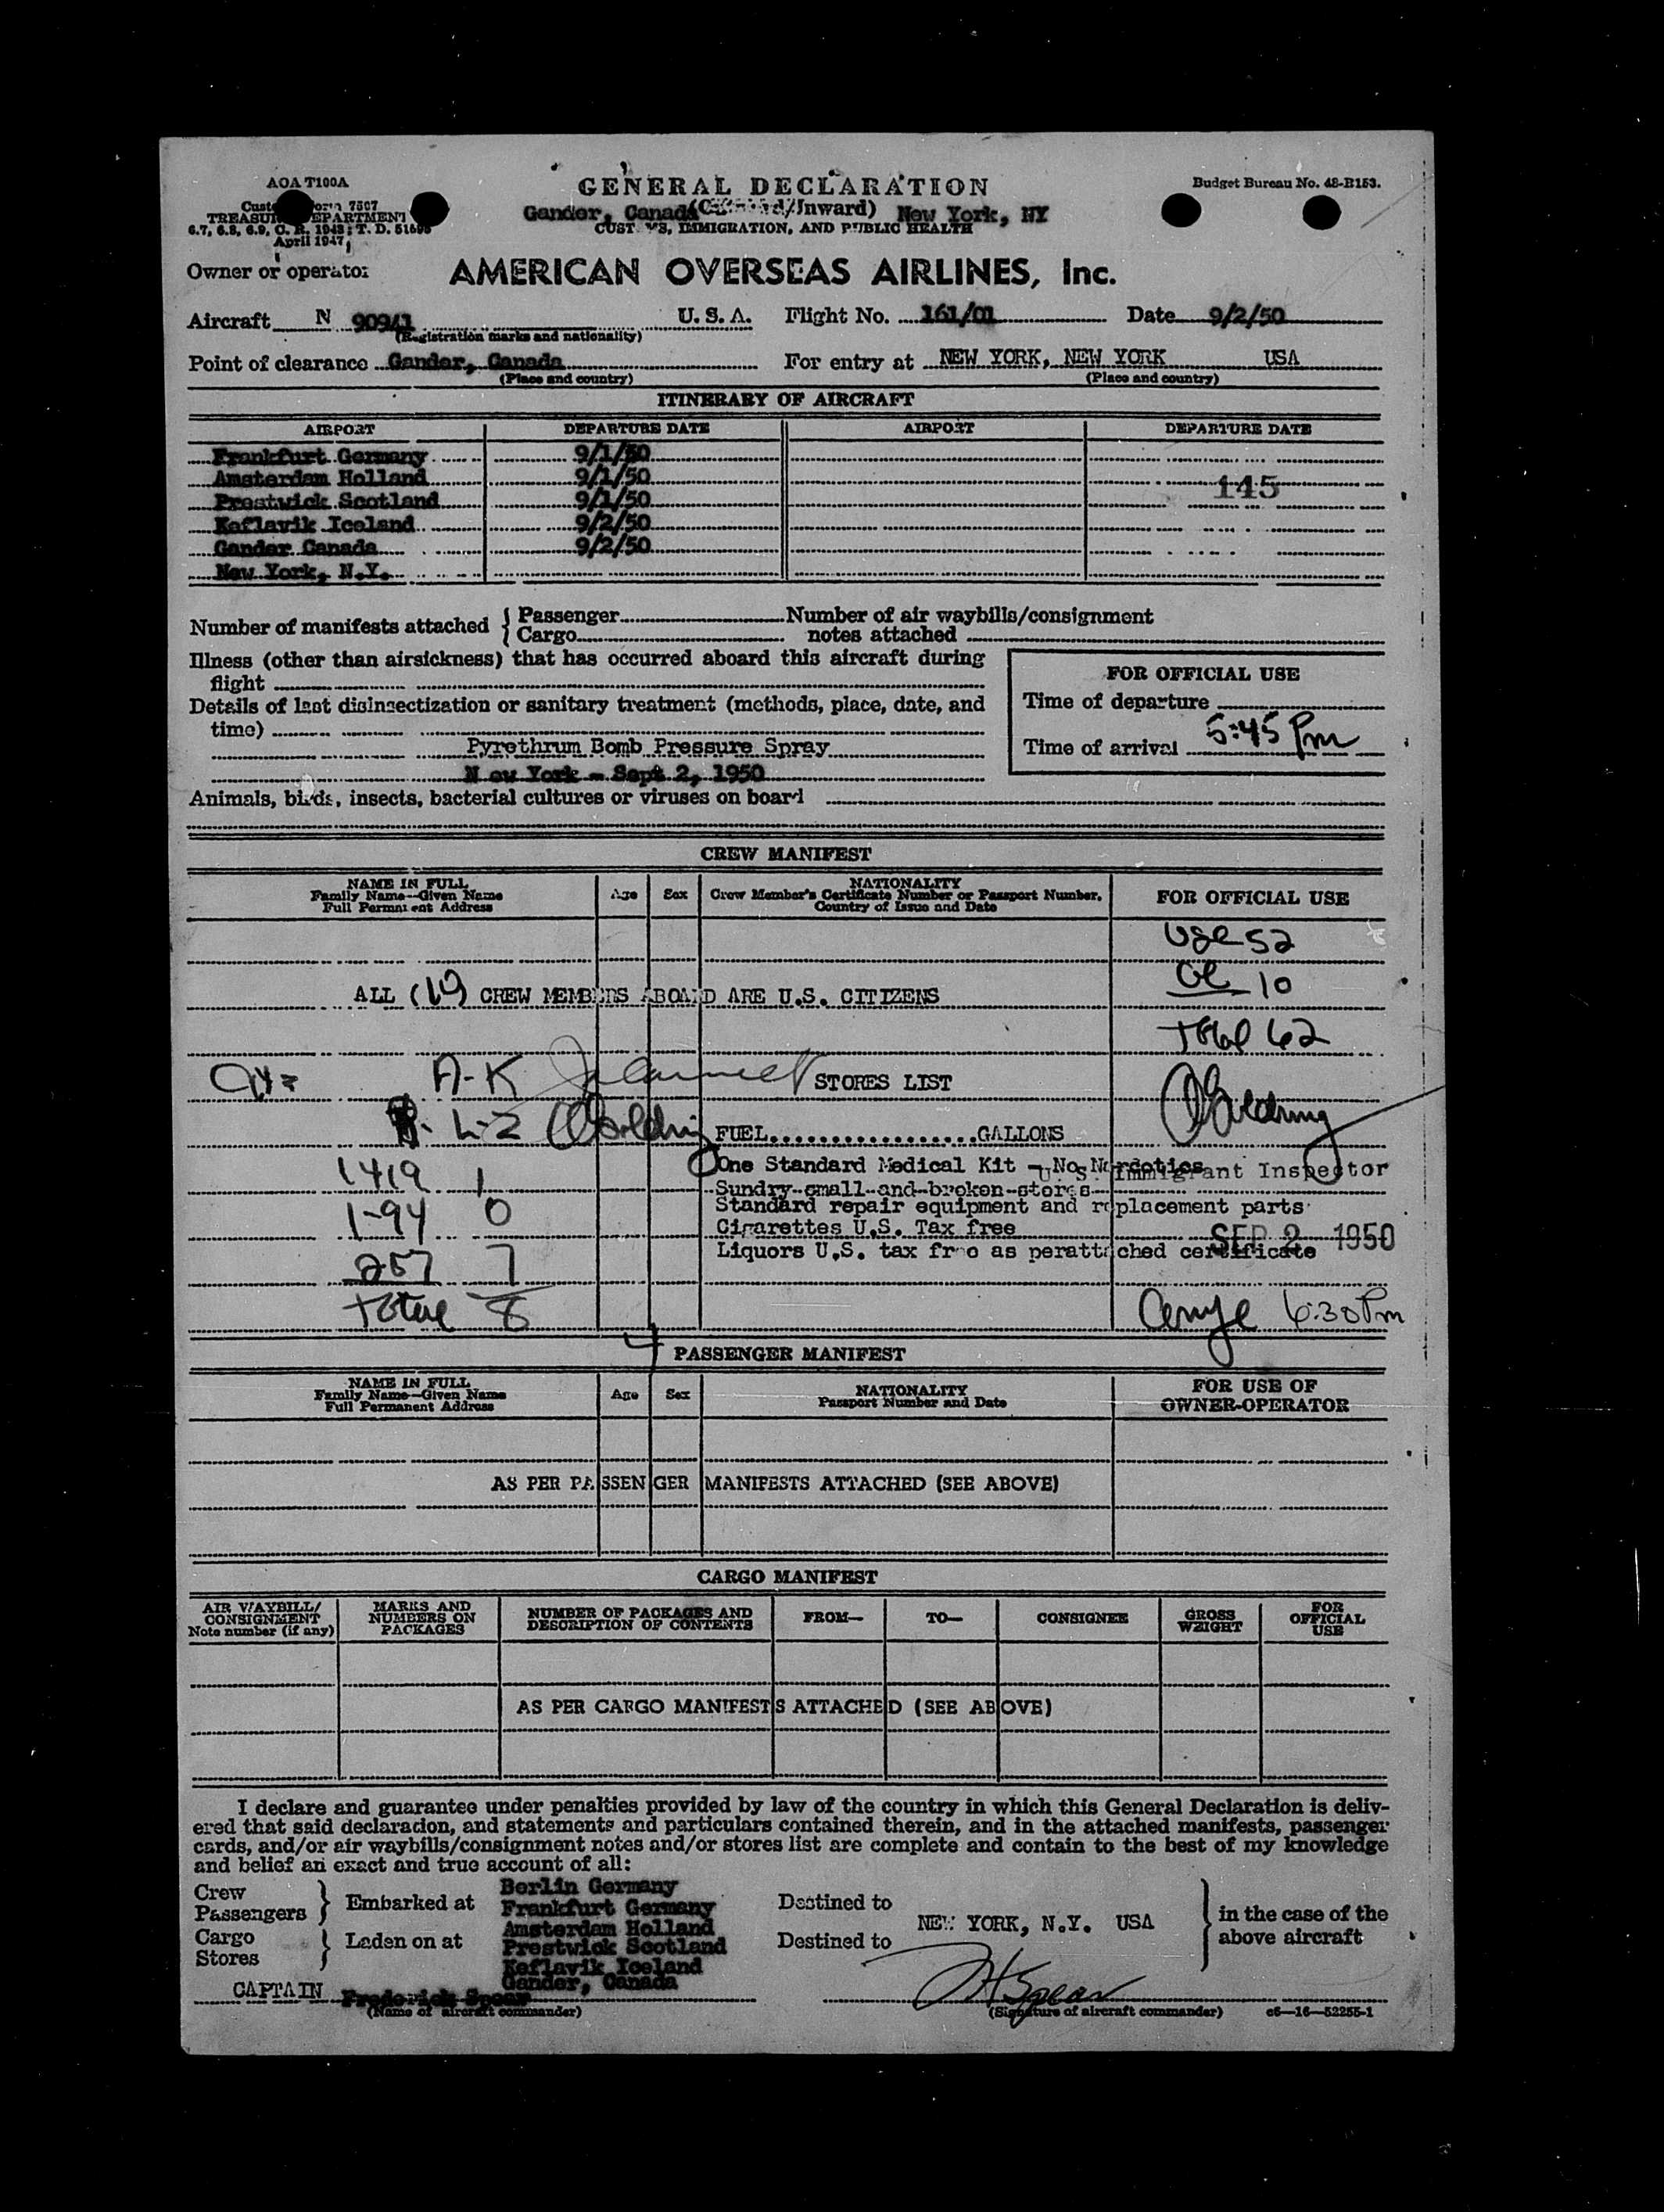 AOA T100A
GENERAL DECLARATION
Budget Bureau No. 48-R153.
Gander, Canada /Inward) New York, NY
TREASURY DEPARTMENT
CUSTOMS, IMMIGRATION, AND PUBLIC HEALTH
6.7, 6.8, 6.9, C. R. 1943; T. D. 51698
April 1947
Owner or operator AMERICAN OVERSEAS AIRLINES, Inc.
Aircraft N 90941 U. S. A. Flight No. 161/01 Date 9/2/50
(Registration marks and nationality)
Point of clearance Gander, Canada For entry at NEW YORK, NEW YORK USA
(Place and country) (Place and country)
ITINERARY OF AIRCRAFT
AIRPORT DEPARTURE DATE AIRPORT DEPARTURE DATE
Frankfurt Germany 9/1/50
Amsterdam Holland 9/1/50 145
Prestwick Scotland 9/1/50
Keflavik Iceland 9/2/50
Gander Canada 9/2/50
New York, N.Y.
Number of manifests attached { Passenger Number of air waybills/consignment
Cargo notes attached
Illness (other than airsickness) that has occurred aboard this aircraft during
flight
FOR OFFICIAL USE
Details of last disinsectization or sanitary treatment (methods, place, date, and
time)
Time of departure
Pyrethrum Bomb Pressure Spray
Time of arrival 5:45 Pm
N ew York - Sept 2, 1950
Animals, birds, insects, bacterial cultures or viruses on board
CREW MANIFEST
NAME IN FULL
Family Name—Given Name
Full Permanent Address
Age Sex
NATIONALITY
Crew Member's Certificate Number or Passport Number.
Country of Issue and Date
FOR OFFICIAL USE
52
10
ALL (19) CREW MEMBERS ABOARD ARE U.S. CITIZENS
Total 62
A-K
STORES LIST
L-Z Goldring
Goldring
FUEL..................GALLONS
One Standard Medical Kit - No Narcotics
U. S. Immigrant Inspector
1419 1
Sundry small and broken stores
Standard repair equipment and replacement parts
1-94 0
Cigarettes U.S. Tax free
SEP 2 1950
Liquors U.S. tax free as perattached certificate
257 7
Total 8
6:30 Pm
4
PASSENGER MANIFEST
NAME IN FULL
Family Name—Given Name
Full Permanent Address
Age Sex
NATIONALITY
Passport Number and Date
FOR USE OF
OWNER-OPERATOR
AS PER PASSENGER MANIFESTS ATTACHED (SEE ABOVE)
CARGO MANIFEST
AIR WAYBILL/
CONSIGNMENT
Note number (if any)
MARKS AND
NUMBERS ON
PACKAGES
NUMBER OF PACKAGES AND
DESCRIPTION OF CONTENTS
FROM—
TO—
CONSIGNEE
GROSS
WEIGHT
FOR
OFFICIAL
USE
AS PER CARGO MANIFESTS ATTACHED (SEE ABOVE)
I declare and guarantee under penalties provided by law of the country in which this General Declaration is deliv-
ered that said declaration, and statements and particulars contained therein, and in the attached manifests, passenger
cards, and/or air waybills/consignment notes and/or stores list are complete and contain to the best of my knowledge
and belief an exact and true account of all:
Crew
Passengers } Embarked at
Cargo
Stores } Laden on at
Berlin Germany
Frankfurt Germany
Amsterdam Holland
Prestwick Scotland
Keflavik Iceland
Gander, Canada
Destined to
NEW YORK, N.Y. USA
Destined to
in the case of the
above aircraft
CAPTAIN Frederick Spear
(Name of aircraft commander)
Spear
(Signature of aircraft commander) c6—16—52255-1